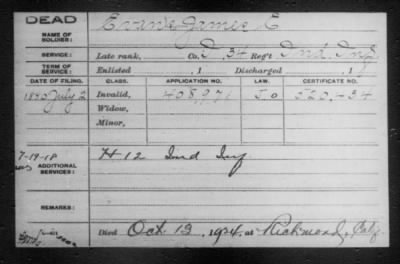 DEAD
NAME OF SOLDIER: Evans James E
SERVICE: Late rank, Co. D, 34 Reg't Ind. Inf.
TERM OF SERVICE: Enlisted , 1 Discharged , 1
DATE OF FILING. CLASS. APPLICATION NO. LAW. CERTIFICATE NO.
1880 July 2 Invalid, 408,971
Widow,
Minor,
7-19-18
ADDITIONAL SERVICES: H 12 Ind Inf
REMARKS:
Died Oct. 13, 1924, at Richmond, Calif.